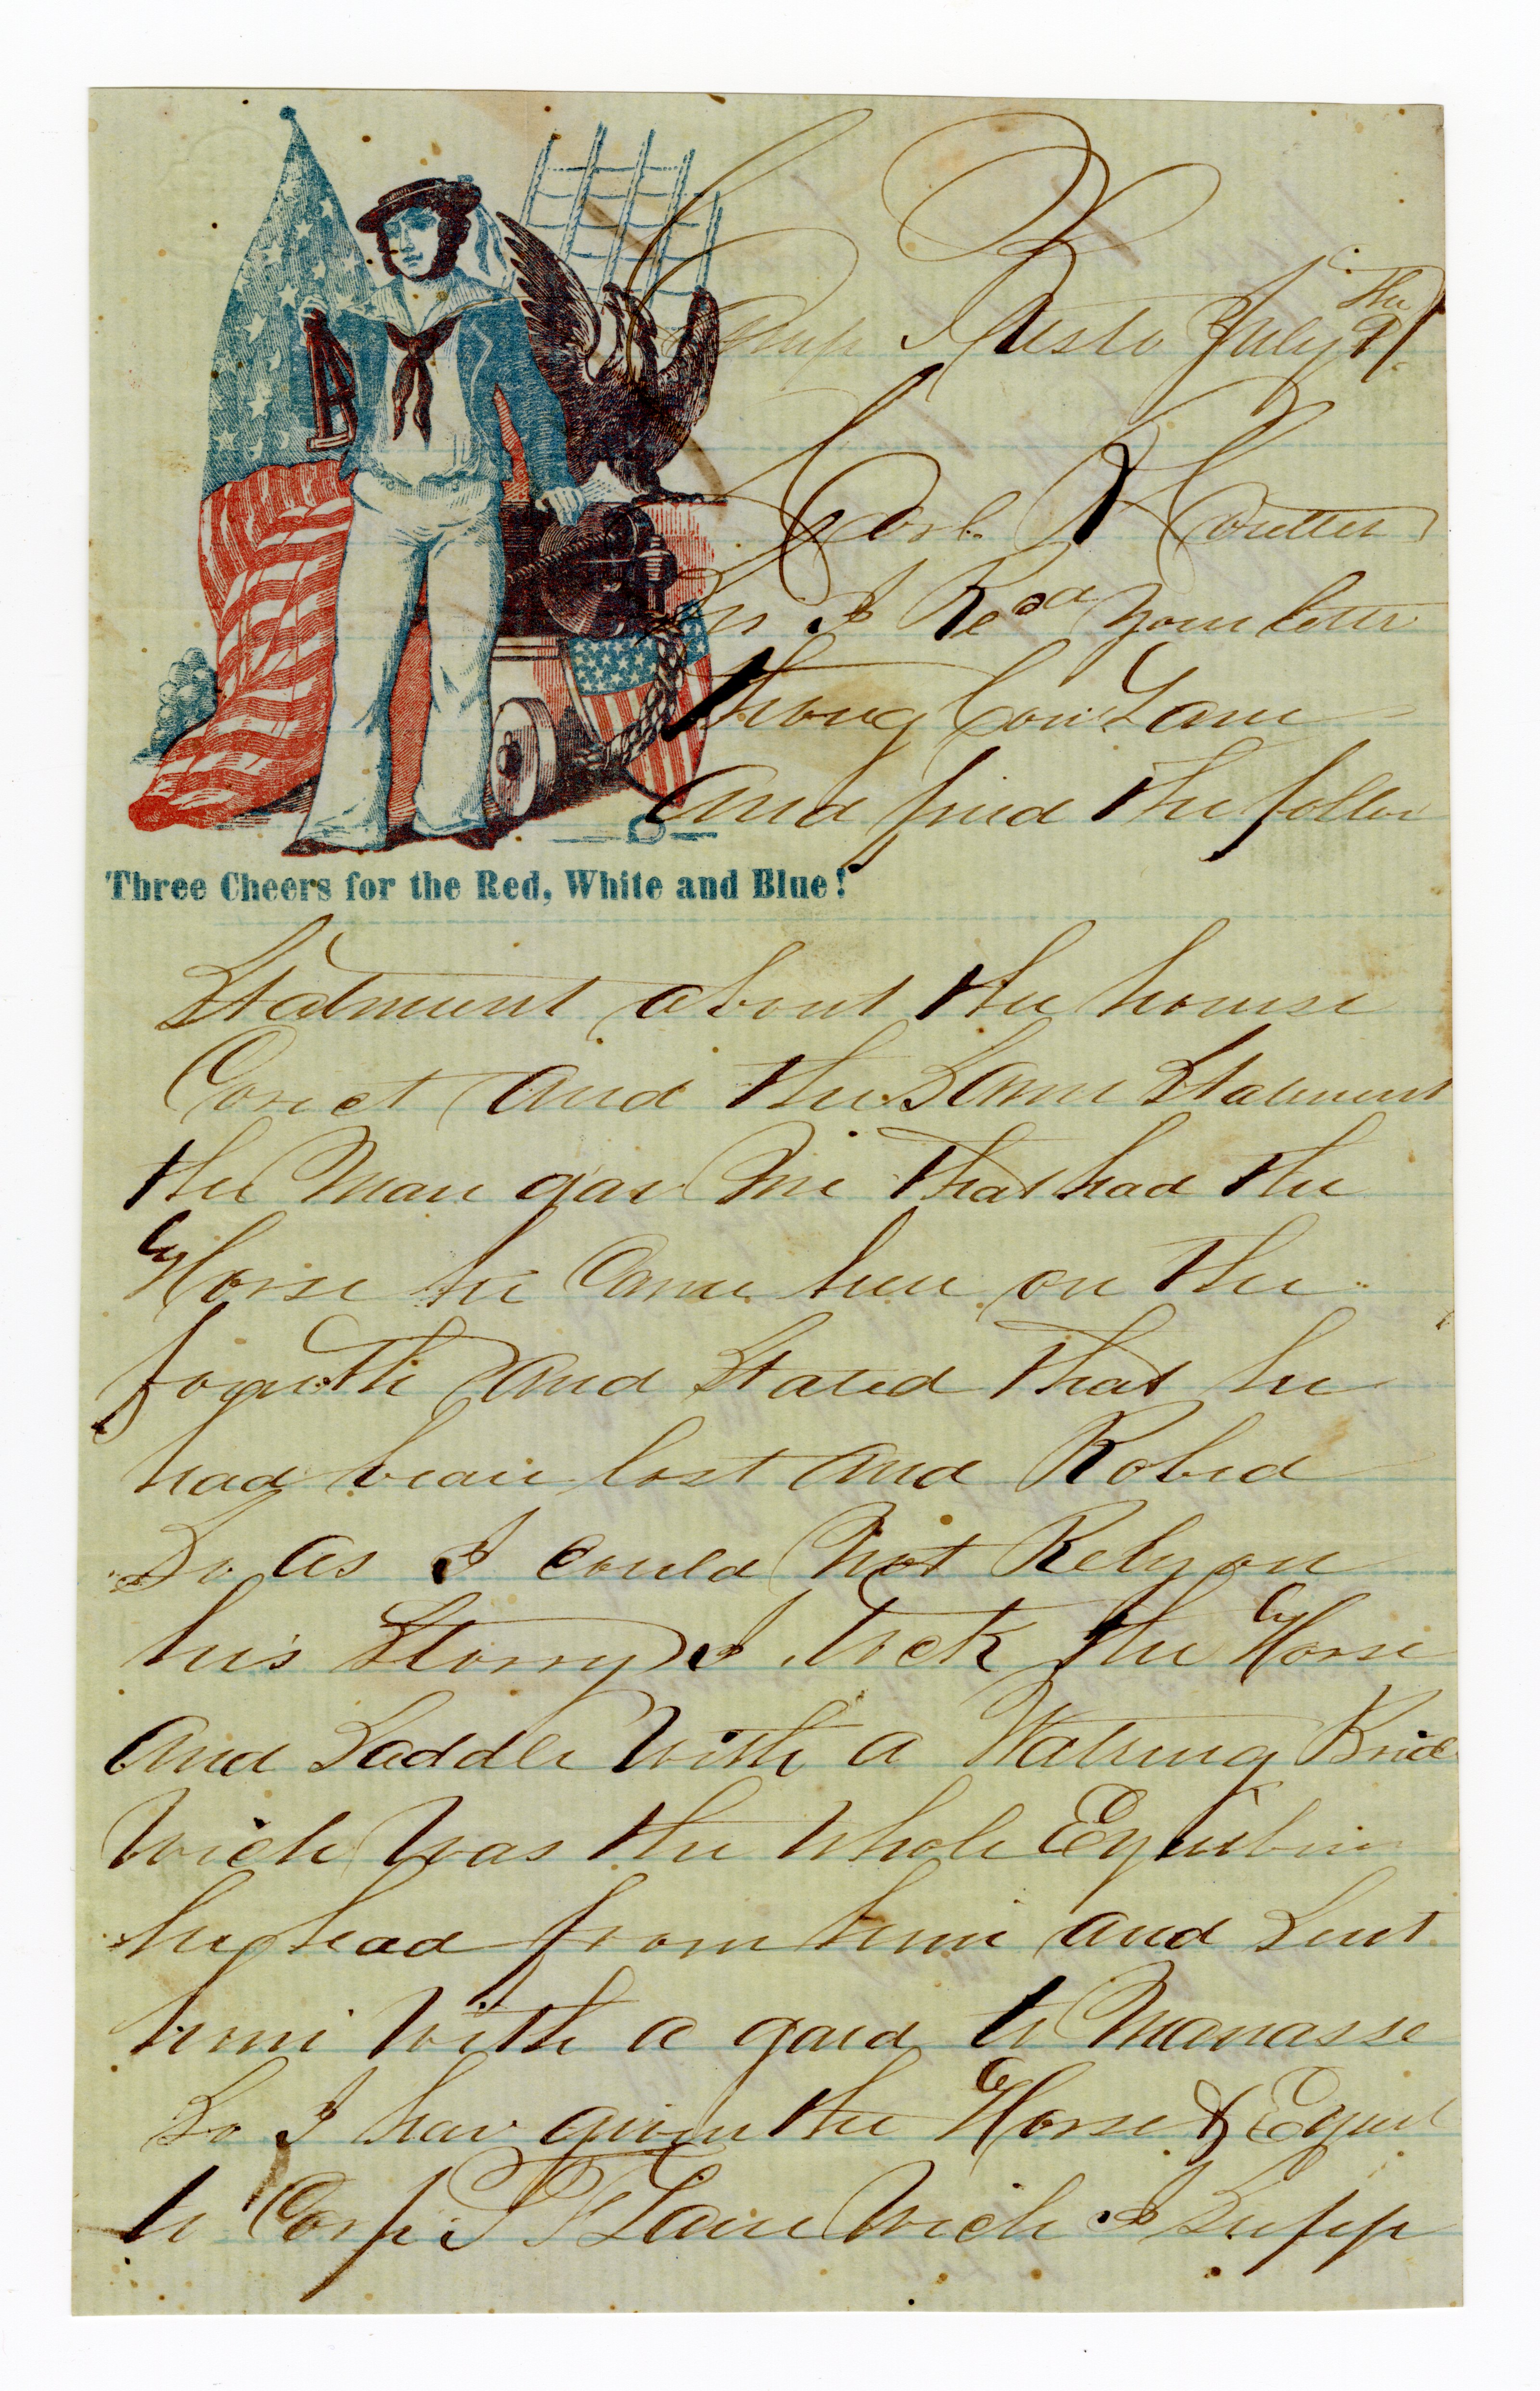 Camp July 9 The
Corl R Coulter
Sir I Recd your letter
throug Cor. Lane
And find the follow
Three Cheers for the Red, White and Blue!
Statment about the hourse
Corect and the Same Statment
the Man gav Me that had the
Horse he Came here on the
fourth And Stated that he
had bean lost and Robed
So as I could Not Rely on
his Storry I tock the Horse
And Saddle With a Watring Bride
Wich Was the Whole
he had from him and Sent
him With a gard to Manasse
So I hav given the Horse & Equit
to Corp Lane Wich I Supp